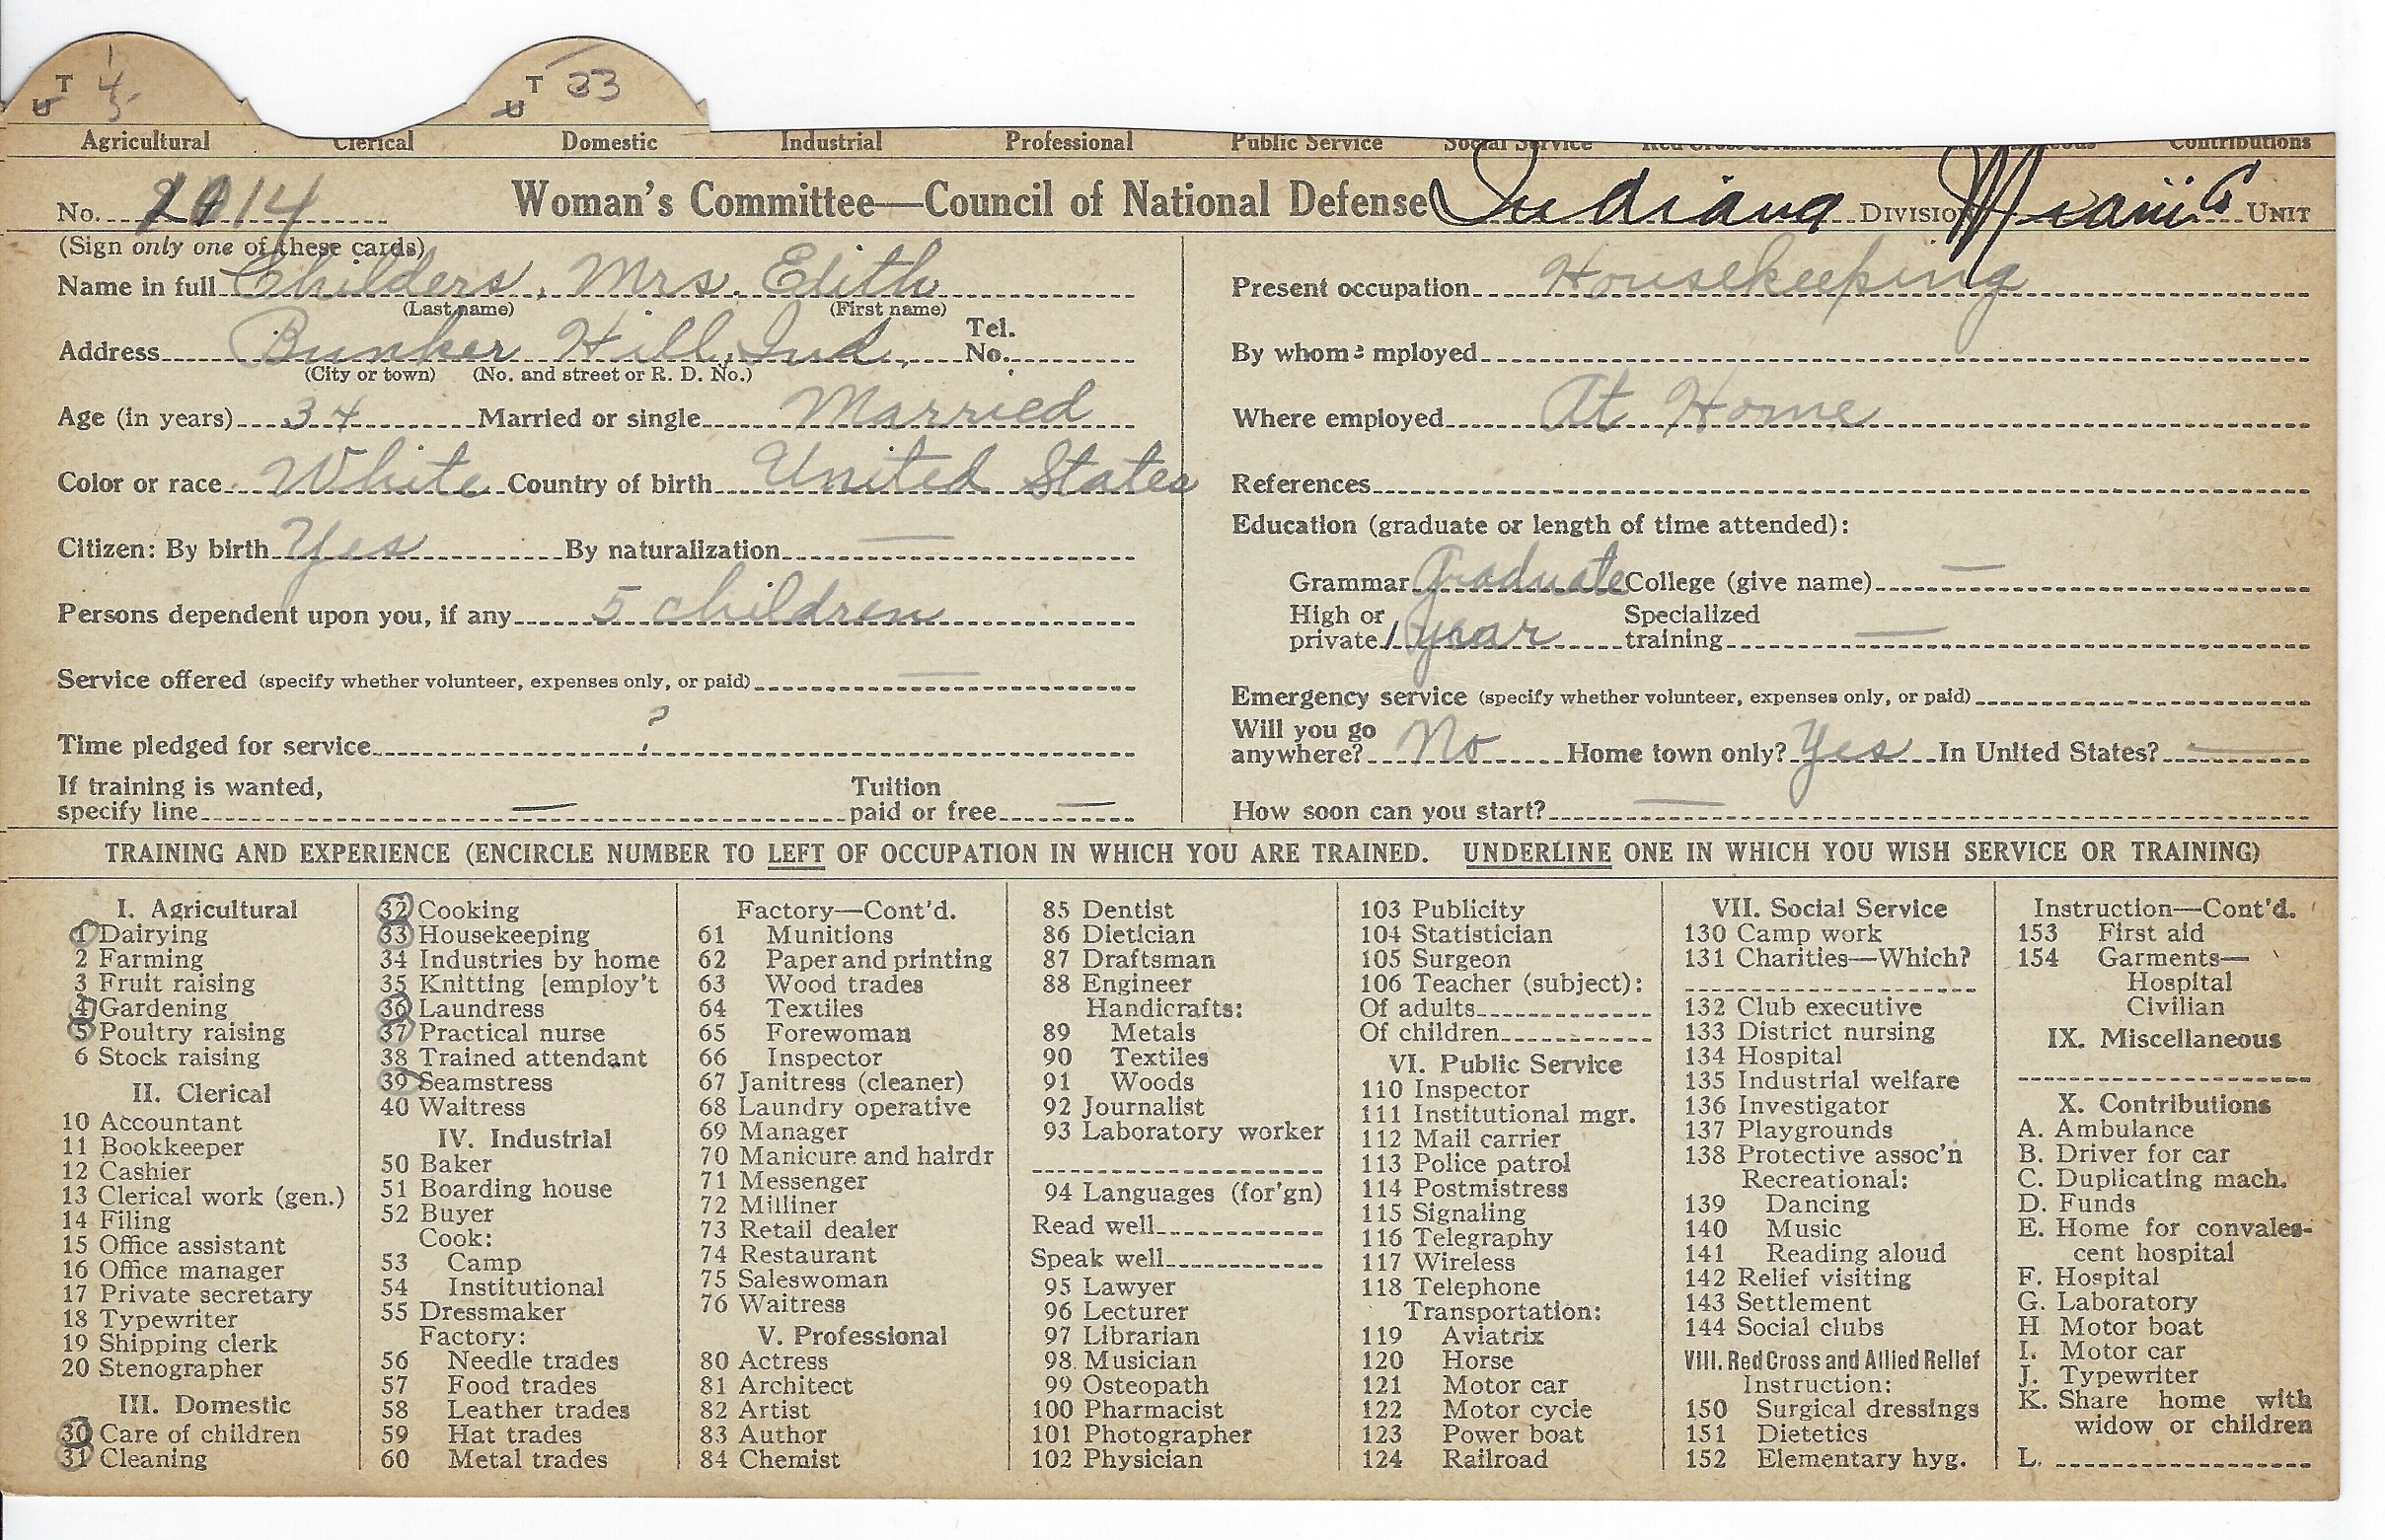 T 1 4 5
U
T 33
U
Agricultural Clerical Domestic Industrial Professional Public Service Social Service Contributions
No. 14 Woman's Committee—Council of National Defense Indiana DIVISION Miami UNIT
(Sign only one of these cards)
Name in full Childers, Mrs. Edith
(Last name) (First name)
Address Bunker Hill, Ind. Tel. No.
(City or town) (No. and street or R. D. No.)
Age (in years) 34 Married or single Married
Color or race White Country of birth United States
Citizen: By birth Yes By naturalization —
Persons dependent upon you, if any 5 children
Service offered (specify whether volunteer, expenses only, or paid) —
Time pledged for service ?
If training is wanted,
specify line — Tuition paid or free —
Present occupation Housekeeping
By whom employed
Where employed At Home
References
Education (graduate or length of time attended):
Grammar Graduate College (give name) —
High or private 1 year Specialized training —
Emergency service (specify whether volunteer, expenses only, or paid)
Will you go anywhere? No Home town only? Yes In United States? —
How soon can you start? —
TRAINING AND EXPERIENCE (ENCIRCLE NUMBER TO LEFT OF OCCUPATION IN WHICH YOU ARE TRAINED. UNDERLINE ONE IN WHICH YOU WISH SERVICE OR TRAINING)
I. Agricultural
1 Dairying
2 Farming
3 Fruit raising
4 Gardening
5 Poultry raising
6 Stock raising
II. Clerical
10 Accountant
11 Bookkeeper
12 Cashier
13 Clerical work (gen.)
14 Filing
15 Office assistant
16 Office manager
17 Private secretary
18 Typewriter
19 Shipping clerk
20 Stenographer
III. Domestic
30 Care of children
31 Cleaning
32 Cooking
33 Housekeeping
34 Industries by home
35 Knitting [employ't
36 Laundress
37 Practical nurse
38 Trained attendant
39 Seamstress
40 Waitress
IV. Industrial
50 Baker
51 Boarding house
52 Buyer
Cook:
53 Camp
54 Institutional
55 Dressmaker
Factory:
56 Needle trades
57 Food trades
58 Leather trades
59 Hat trades
60 Metal trades
Factory—Cont'd.
61 Munitions
62 Paper and printing
63 Wood trades
64 Textiles
65 Forewoman
66 Inspector
67 Janitress (cleaner)
68 Laundry operative
69 Manager
70 Manicure and hairdr
71 Messenger
72 Milliner
73 Retail dealer
74 Restaurant
75 Saleswoman
76 Waitress
V. Professional
80 Actress
81 Architect
82 Artist
83 Author
84 Chemist
85 Dentist
86 Dietician
87 Draftsman
88 Engineer
Handicrafts:
89 Metals
90 Textiles
91 Woods
92 Journalist
93 Laboratory worker
94 Languages (for'gn)
Read well
Speak well
95 Lawyer
96 Lecturer
97 Librarian
98. Musician
99 Osteopath
100 Pharmacist
101 Photographer
102 Physician
103 Publicity
104 Statistician
105 Surgeon
106 Teacher (subject):
Of adults
Of children
VI. Public Service
110 Inspector
111 Institutional mgr.
112 Mail carrier
113 Police patrol
114 Postmistress
115 Signaling
116 Telegraphy
117 Wireless
118 Telephone
Transportation:
119 Aviatrix
120 Horse
121 Motor car
122 Motor cycle
123 Power boat
124 Railroad
VII. Social Service
130 Camp work
131 Charities—Which?
132 Club executive
133 District nursing
134 Hospital
135 Industrial welfare
136 Investigator
137 Playgrounds
138 Protective assoc'n
Recreational:
139 Dancing
140 Music
141 Reading aloud
142 Relief visiting
143 Settlement
144 Social clubs
VIII. Red Cross and Allied Relief
Instruction:
150 Surgical dressings
151 Dietetics
152 Elementary hyg.
Instruction—Cont'd.
153 First aid
154 Garments—
Hospital
Civilian
IX. Miscellaneous
X. Contributions
A. Ambulance
B. Driver for car
C. Duplicating mach.
D. Funds
E. Home for convales-
cent hospital
F. Hospital
G. Laboratory
H Motor boat
I. Motor car
J. Typewriter
K. Share home with
widow or children
L.